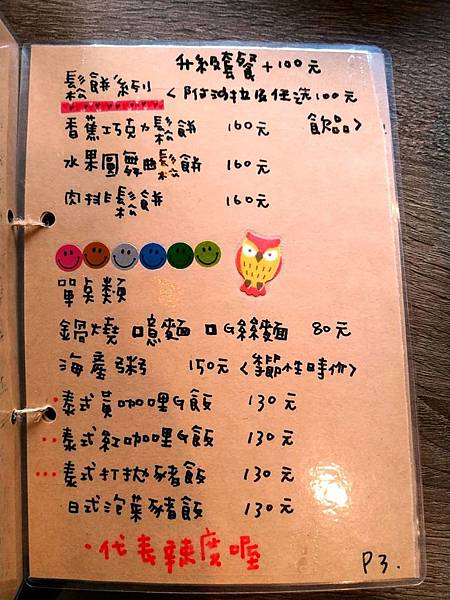 升級套餐+100元
鬆餅系列 <附沙拉及任选100元
香蕉巧克力鬆餅 160元 飲品>
水果圓舞曲鬆餅 160元
肉排鬆餅 160元
單點類
鍋燒 口烏麵 口G絲麵 80元
海產粥 150元 <季節性時价>
•泰式黃咖哩G飯 130元
••泰式紅咖哩G飯 130元
•••泰式打拋豬飯 130元
日式泡菜豬飯 130元
•代表辣度喔
P3.